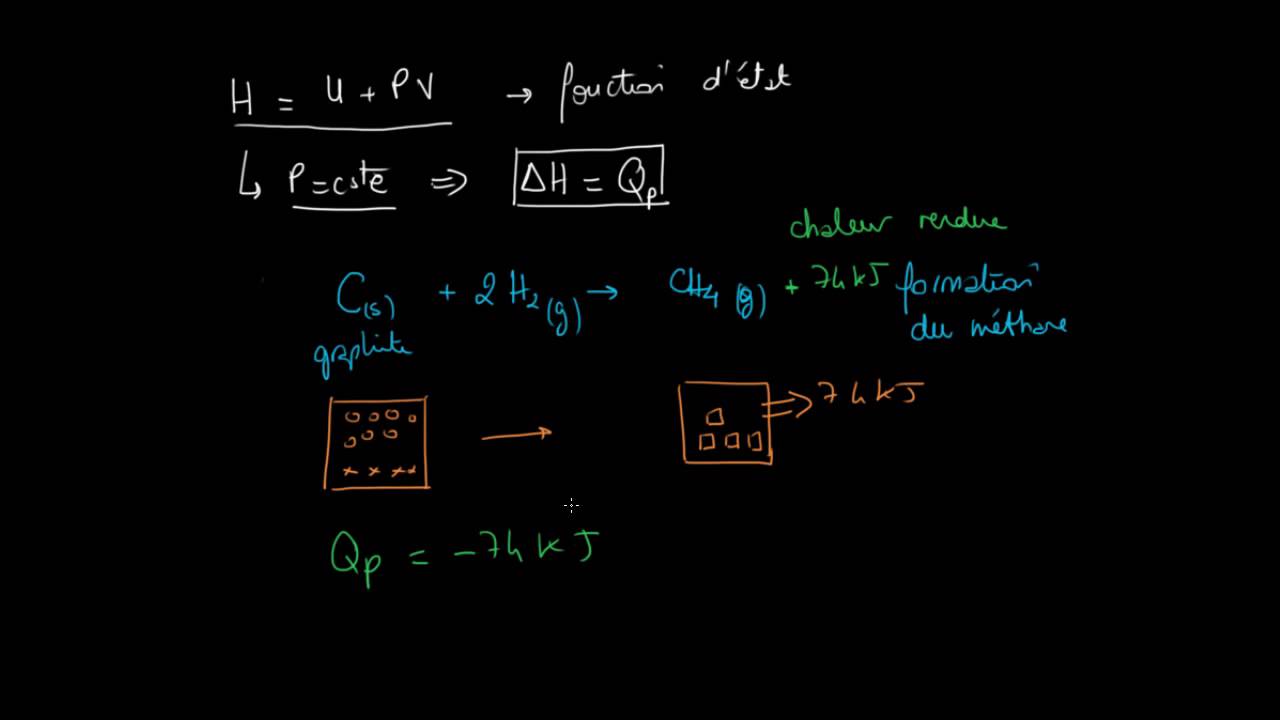 H = U + PV → fonction d'état
↳ P = cste ⇒ ΔH = Qp
chaleur rendue
C(s) + 2 H2 (g) → CH4 (g) + 74 kJ formation
graphite
du méthane
⇒ 74 kJ
Qp = -74 kJ